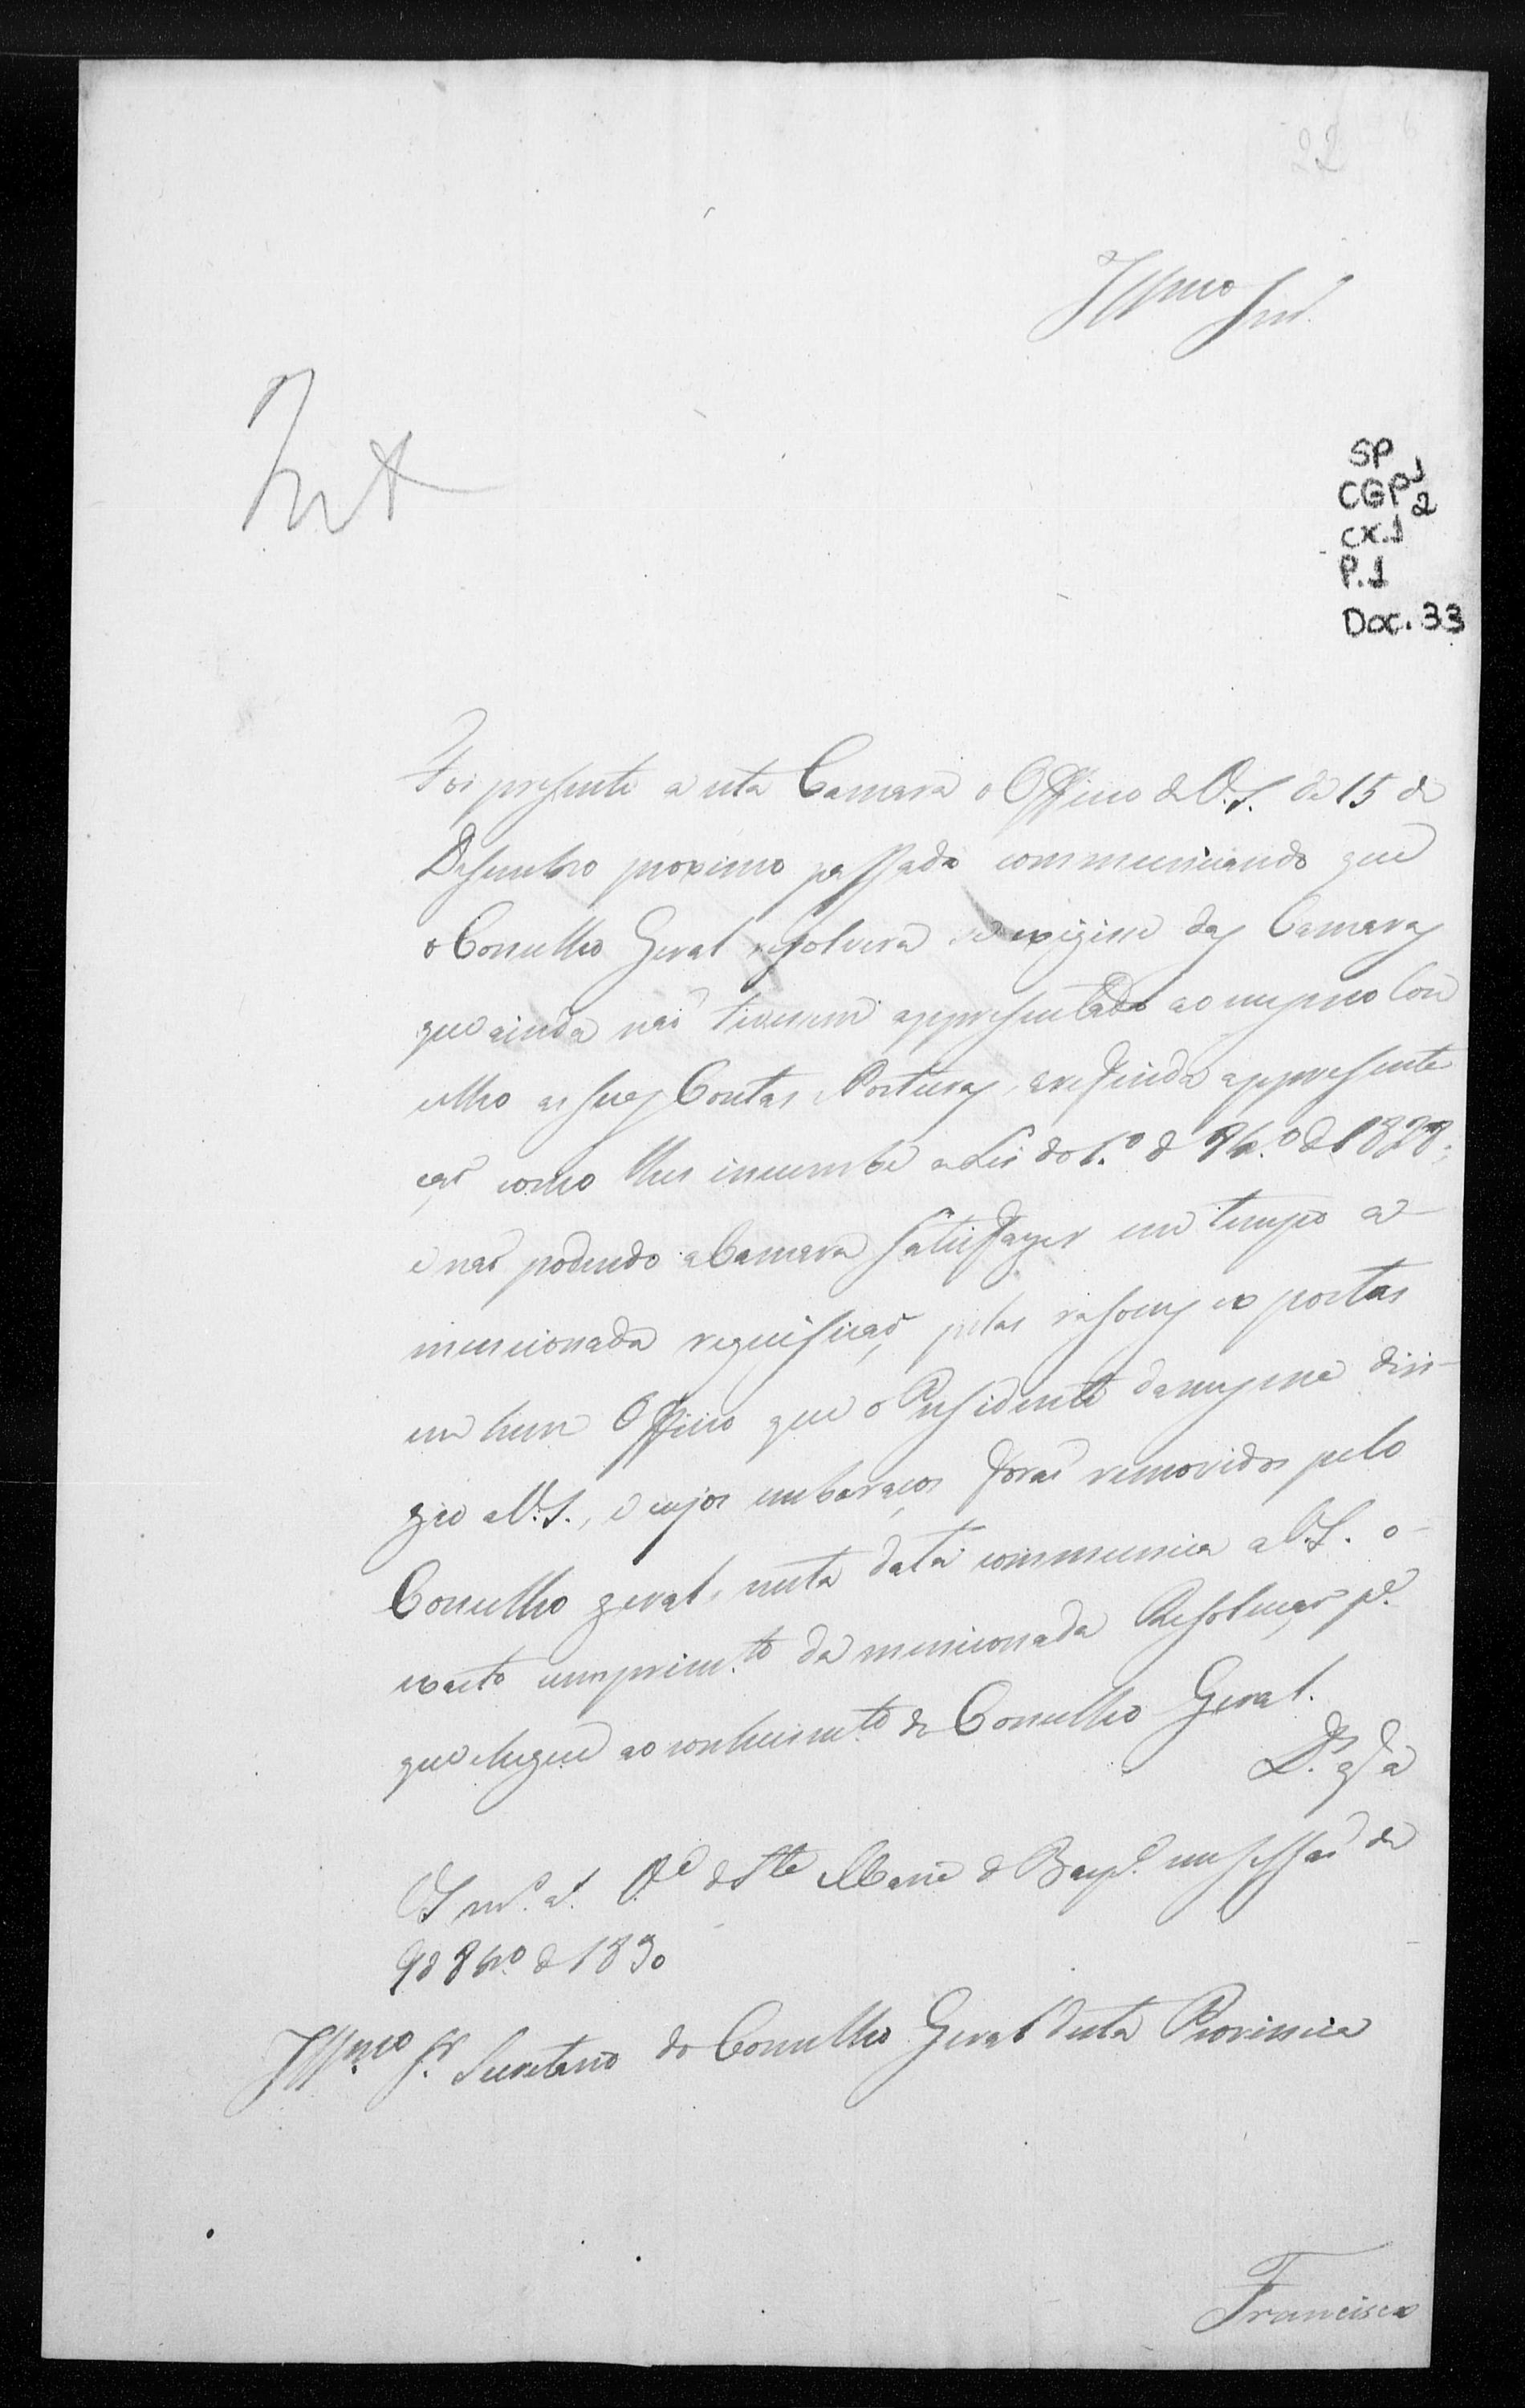 22
Illmo Snr.
Int
SP
CGP1
2
cx.1
P.1
Doc. 33
Foi presente a esta Camara o Officio de V.S. de 15 de
Desembro proximo passado communicando que
o Conselho Geral resolvera se exigisse das Camaras
que ainda naõ tivessem appresentado ao mesmo Con
selho as suas Contas, Posturas, a referida appresenta
çaõ como lhes incumbe a Lei do 1.º d 8br.º d 1828;
e naõ podendo a Camara satisfazer em tempo a
mencionada requisiçaõ, pelas rasoens expostas
em hum Officio que o Presidente da mesma diri-
gio a V.S., e cujos embaraços foraõ removidos pelo
Conselho geral, nesta data communica a V.S. o
exacto cumprim.to da mencionada Resoluçaõ p.ª
que chegue ao conhecim.to do Conselho Geral.
D.s g.e a
V.S. m.s a.s V.a d S.ta Maria d Baep.di em sessaõ de
9 d 8br.o d 1830
Illmo Sr. Secretario do Conselho Geral desta Provincia
Francisco